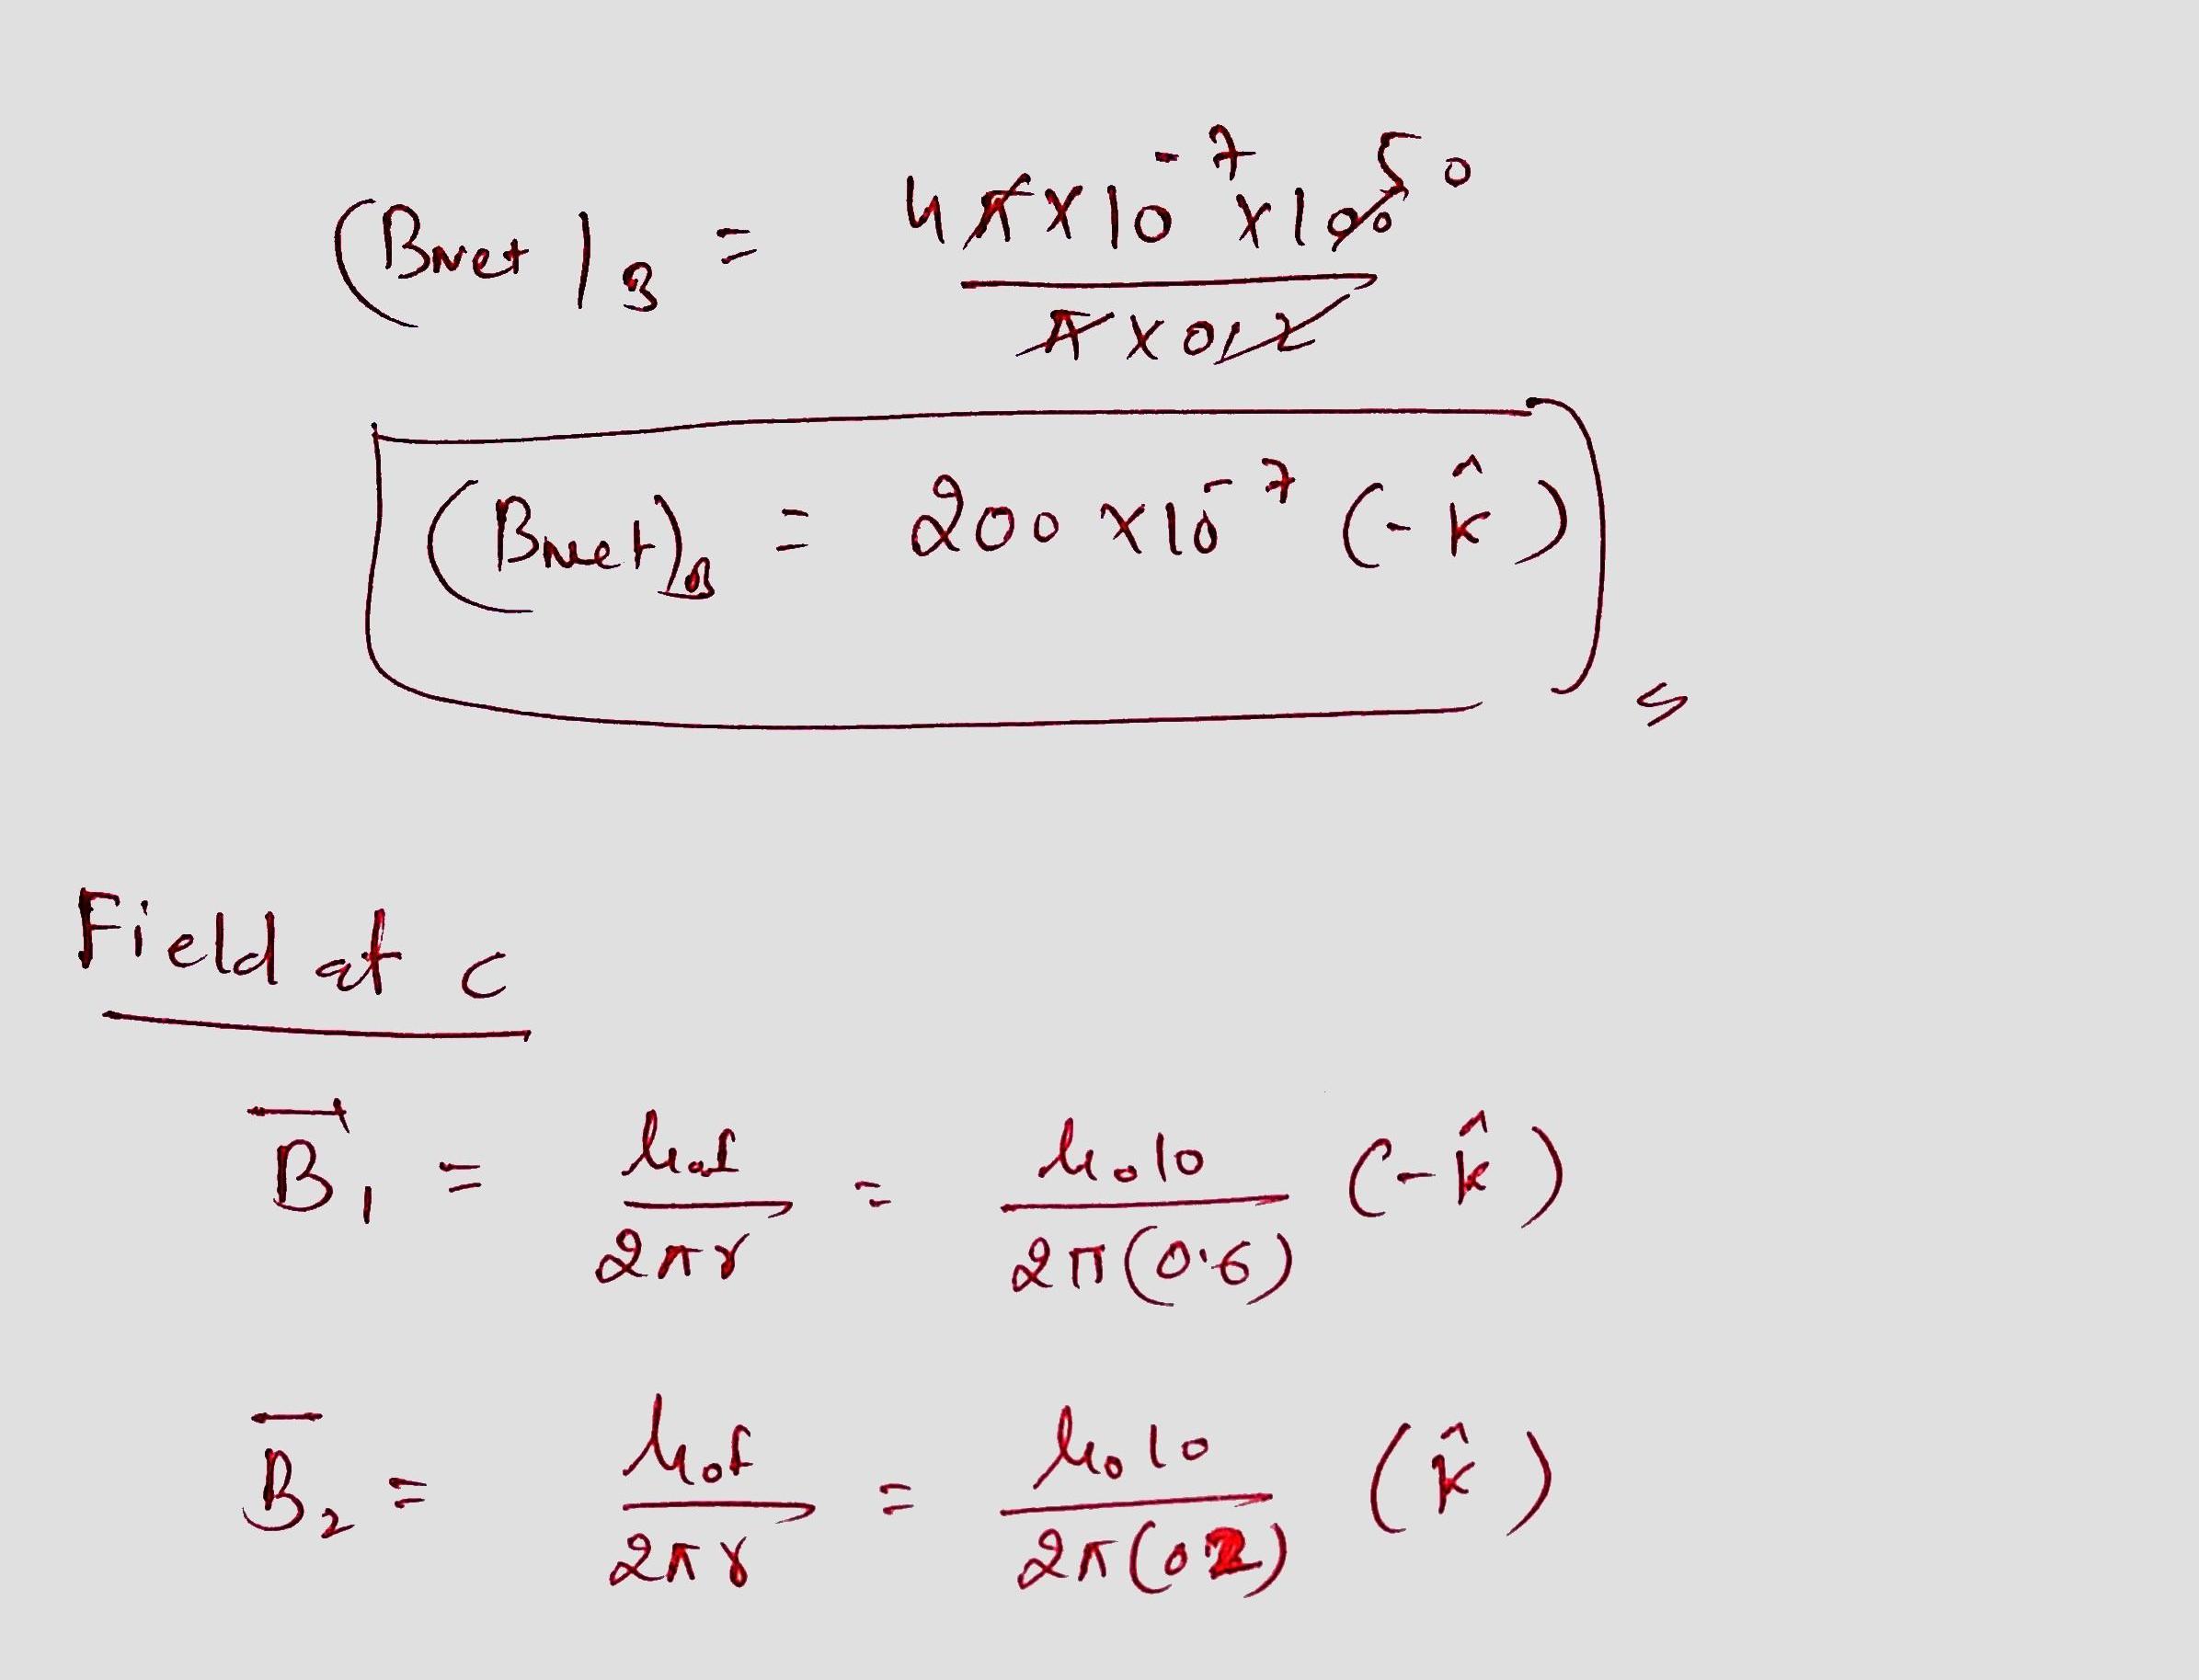 (Bnet)B = 4π×10^-7×100 50 / π×0.2
(Bnet)B = 200×10^-7 (-k̂)
Field at C
B⃗1 = μ0I / 2πr = μ010 / 2π(0.6) (-k̂)
B⃗2 = μ0I / 2πr = μ010 / 2π(02) (k̂)